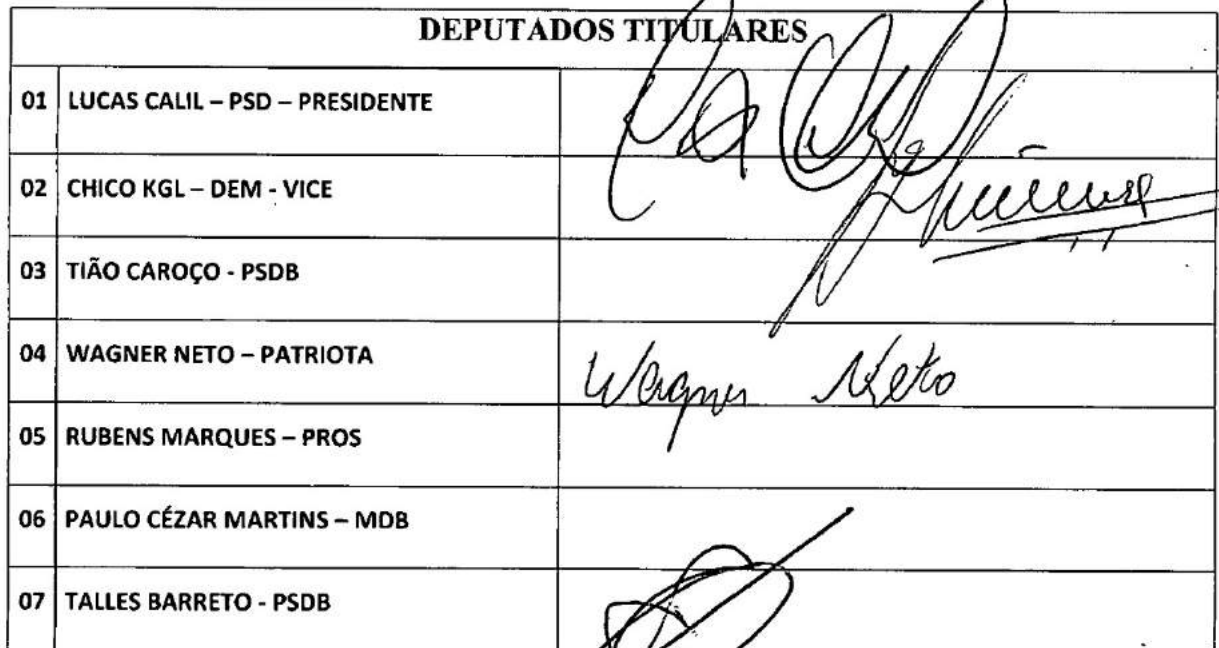 DEPUTADOS TITULARES
01 LUCAS CALIL – PSD – PRESIDENTE
02 CHICO KGL – DEM - VICE
03 TIÃO CAROÇO - PSDB
04 WAGNER NETO – PATRIOTA Wagner Neto
05 RUBENS MARQUES – PROS
06 PAULO CÉZAR MARTINS – MDB
07 TALLES BARRETO - PSDB